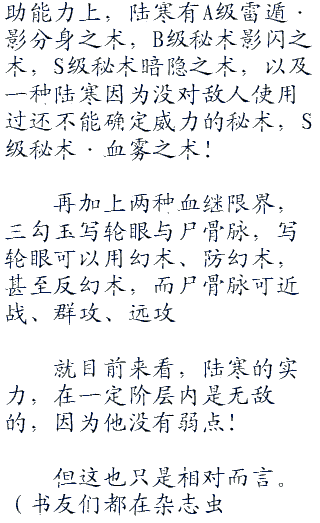 助能力上，陆寒有A级雷遁·
影分身之术，B级秘术影闪之
术，S级秘术暗隐之术，以及
一种陆寒因为没对敌人使用
过还不能确定威力的秘术，S
级秘术·血雾之术！
再加上两种血继限界，
三勾玉写轮眼与尸骨脉，写
轮眼可以用幻术、防幻术，
甚至反幻术，而尸骨脉可近
战、群攻、远攻
就目前来看，陆寒的实
力，在一定阶层内是无敌
的，因为他没有弱点！
但这也只是相对而言。
（书友们都在杂志虫